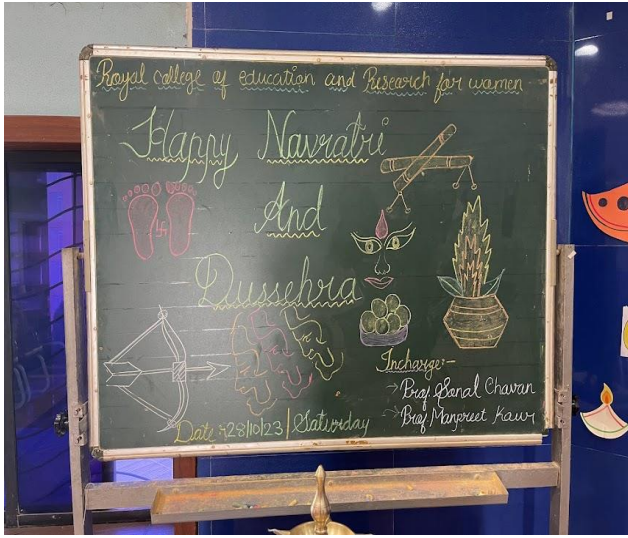 Royal College of education and Research for women
Happy Navratri
And
Dussehra
Incharge:-
→ Prof. Sonal Chavan
→ Prof. Manpreet Kaur
Date :- 28/10/23 | Saturday